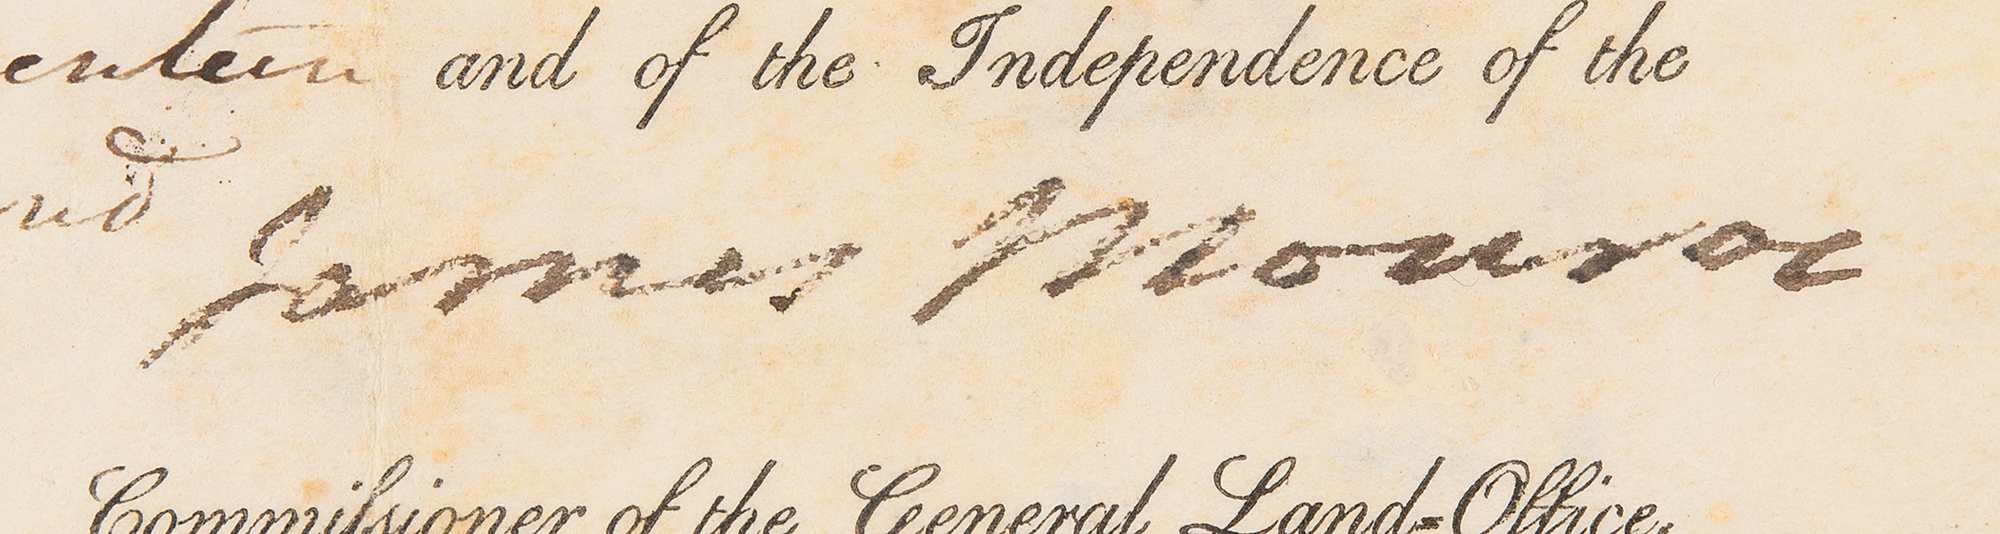 enteen and of the Independence of the
nd
James Monroe
Commiſsioner of the General Land-Office.